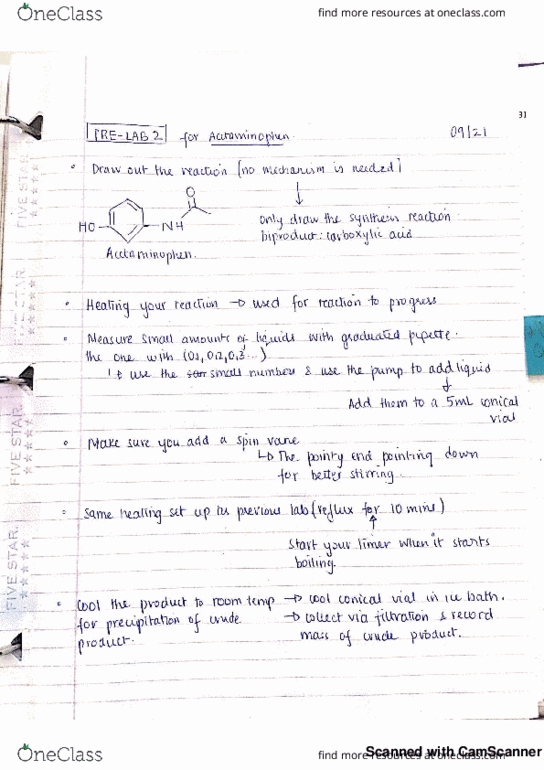 OneClass
find more resources at oneclass.com
31
PRE-LAB 2 for Acetaminophen.
09/21
• Draw out the reaction [no mechanism is needed]
only draw the synthesis reaction
biproduct: carboxylic acid
O
HO
NH
Acetaminophen.
• Heating your reaction → used for reaction to progress
• Measure small amounts of liquids with graduated pipette.
the one with (0.1, 0.2, 0.3 ...)
use the small numbers & use the pump to add liquid
Add them to a 5mL conical
vial
• Make sure you add a spin vane
↳ The pointy end pointing down
for better stirring.
• Same heating set up as previous lab (reflux for 10 mins)
Start your timer when it starts
boiling.
• Cool the product to room temp → cool conical vial in ice bath.
for precipitation of crude → collect via filtration & record
product. mass of crude product.
FIVE STAR
FIVE STAR.
FIVE STAR.
OneClass
find more resources at oneclass.com
Scanned with CamScanner